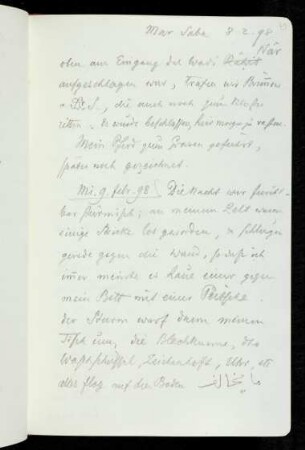 Mar Saba 8.2.98
När
oben am Eingang des Wadi
aufgeschlagen war, trafen wir Brünnow
, die auch noch zum Kloster
ritten. Es wurde beschlossen, hier morgen zu rasten.
Mein Pferd zum Grauen gefüttert,
später noch gezeichnet.
Mi. 9. Febr. 98 Die Nacht war furcht-
bar stürmisch; an meinem Zelt waren
einige Stricke los geworden, & schlugen
gerade gegen die Wand, sodaß ich
immer meinte es haue einer gegen
mein Bett mit einer Peitsche.
Der Sturm warf dann meinen
Tisch um, die Blechkanne, die
Waschschüssel, Zeichenheft, Uhr, etc
alles flog auf die Boden